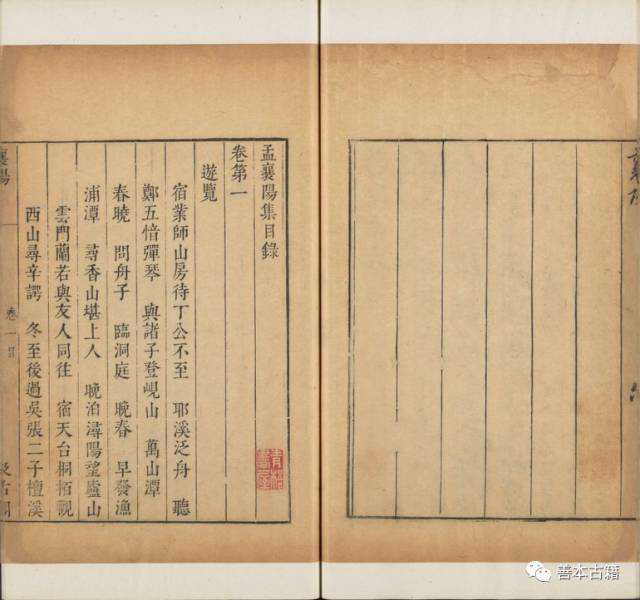 孟襄陽集目錄
卷第一
遊覽
宿業師山房待丁公不至 耶溪泛舟 聽
鄭五愔彈琴 與諸子登峴山 萬山潭
春曉 問舟子 臨洞庭 晚春 早發漁
浦潭 尋香山堪上人 晚泊潯陽望廬山
雲門蘭若與友人同往 宿天台桐栢觀
西山尋辛諤 冬至後過吳張二子檀溪
襄陽
卷一目
善本古籍